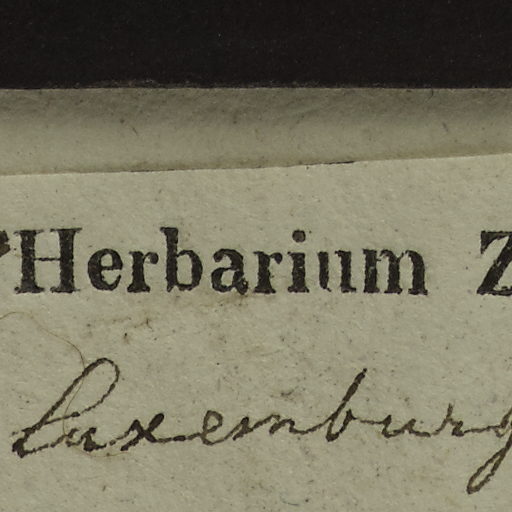 Herbarium Z
Luxemburg